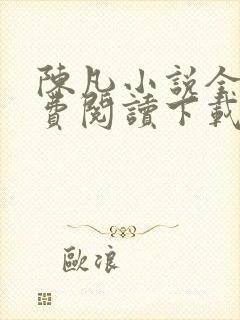 陳凡小說全
費閱讀下載
歐浪